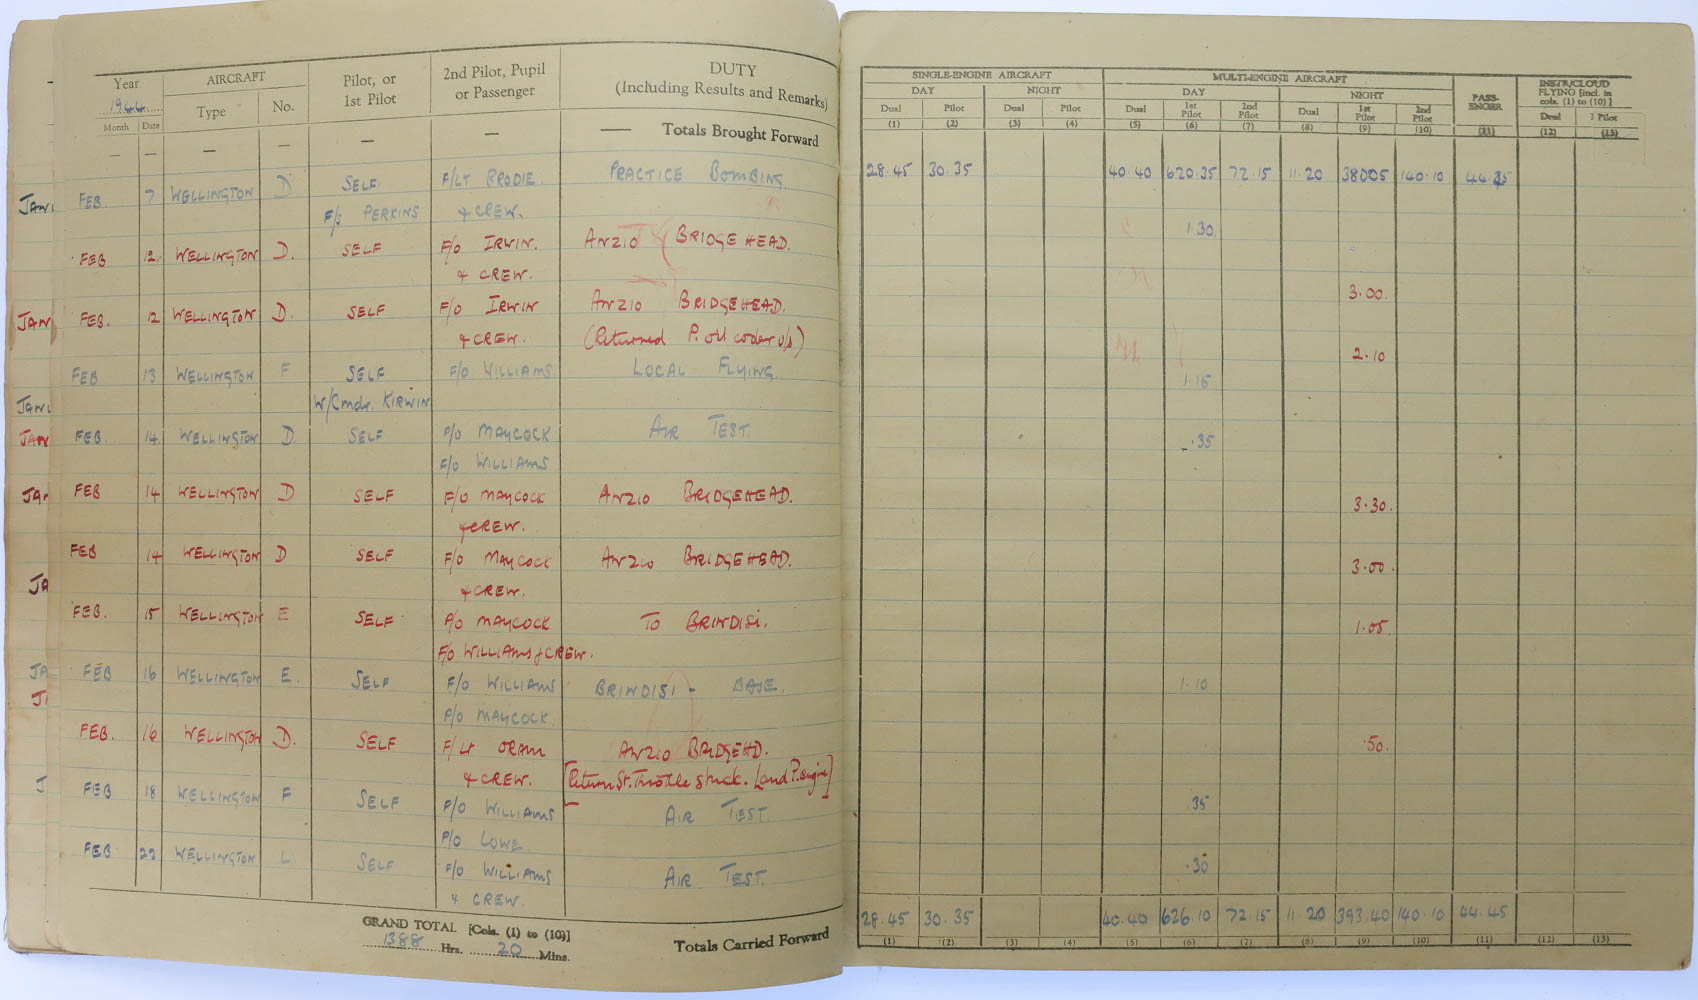 Year AIRCRAFT Pilot, or 1st Pilot 2nd Pilot, Pupil or Passenger DUTY (Including Results and Remarks)
1944 Type No.
Month Date
— — — — — — — Totals Brought Forward
FEB 7 WELLINGTON D SELF F/LT BRODIE. PRACTICE BOMBING
F/S PERKINS & CREW.
FEB 12. WELLINGTON D. SELF F/O IRWIN. ANZIO BRIDGE HEAD.
& CREW.
FEB. 12 WELLINGTON D. SELF F/O IRWIN ANZIO BRIDGEHEAD.
& CREW. (Returned P. oil cooler u/s)
FEB 13 WELLINGTON F SELF F/O WILLIAMS. LOCAL FLYING
W/Cmdr. KIRWIN
FEB. 14. WELLINGTON D. SELF P/O MAYCOCK AIR TEST.
F/O WILLIAMS
FEB 14 WELLINGTON D SELF F/O MAYCOCK ANZIO BRIDGEHEAD.
& CREW.
FEB 14 WELLINGTON D SELF F/O MAYCOCK ANZIO BRIDGEHEAD.
& CREW.
FEB. 15 WELLINGTON E SELF P/O MAYCOCK TO BRINDISI.
F/O WILLIAMS & CREW.
FEB 16 WELLINGTON E. SELF F/O WILLIAMS BRINDISI - BASE.
P/O MAYCOCK.
FEB. 16 WELLINGTON D. SELF F/Lt ORAM ANZIO BRIDGEHD.
& CREW. [Return St. Throttle stuck. Land P. engine]
FEB 18 WELLINGTON F SELF F/O WILLIAMS AIR TEST
P/O LOWE
FEB 22 WELLINGTON L. SELF F/O WILLIAMS AIR TEST.
& CREW.
GRAND TOTAL [Cols. (1) to (10)]
1388 Hrs. 20 Mins. Totals Carried Forward
JAN
JAN
JAN
JAN
JAN
JA
JA
J
J
SINGLE-ENGINE AIRCRAFT MULTI-ENGINE AIRCRAFT PASS-ENGER INSTR/CLOUD FLYING [incl. in cols. (1) to (10)]
DAY NIGHT DAY NIGHT
Dual Pilot Dual Pilot Dual 1st Pilot 2nd Pilot Dual 1st Pilot 2nd Pilot Dual 1 Pilot
(1) (2) (3) (4) (5) (6) (7) (8) (9) (10) (11) (12) (13)
28.45 30.35 40.40 620.35 72.15 11.20 380.05 140.10 44.45
1.30.
3.00.
2.10
1.15
.35
3.30.
3.00.
1.05.
1.10
.50.
.35
.30
28.45 30.35 40.40 626.10 72.15 11.20 393.40 140.10 44.45
(1) (2) (3) (4) (5) (6) (7) (8) (9) (10) (11) (12) (13)